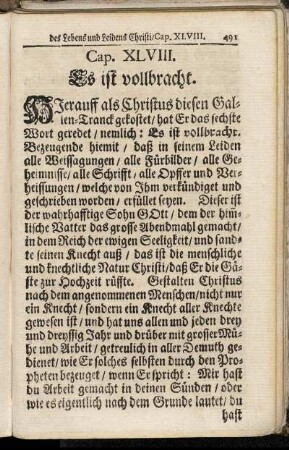 des Lebens und Leidens Christi/Cap. XLVIII. 491
Cap. XLVIII.
Es ist vollbracht.
HJerauff als Christus diesen Gal-
len-Tranck gekostet/ hat Er das sechste
Wort geredet/ nemlich: Es ist vollbracht.
Bezeugende hiemit/ daß in seinem Leiden
alle Weissagungen/ alle Fürbilder/ alle Ge-
heimnisse/ alle Schrifft/ alle Opffer und Ver-
heissungen/ welche von Ihm verkündiget und
geschrieben worden/ erfüllet seyen. Dieser ist
der wahrhafftige Sohn GOtt/ dem der him̃-
lische Vatter das grosse Abendmahl gemacht/
in dem Reich der ewigen Seeligkeit/ und sand-
te seinen Knecht auß/ das ist die menschliche
und knechtliche Natur Christi/ daß Er die Gä-
ste zur Hochzeit rüffte. Gestalten Christus
nach dem angenommenen Menschen/ nicht nur
ein Knecht/ sondern ein Knecht aller Knechte
gewesen ist/ und hat uns allen und jeden drey
und dreyssig Jahr und drüber mit grosser Mühe
und Arbeit/ getreulich in aller Demuth ge-
dienet/ wie Er solches selbsten durch den Pro-
pheten bezeuget/ wenn Er spricht: Mir hast
du Arbeit gemacht in deinen Sünden/ oder
wie es eigentlich nach dem Grunde lautet/ du
hast